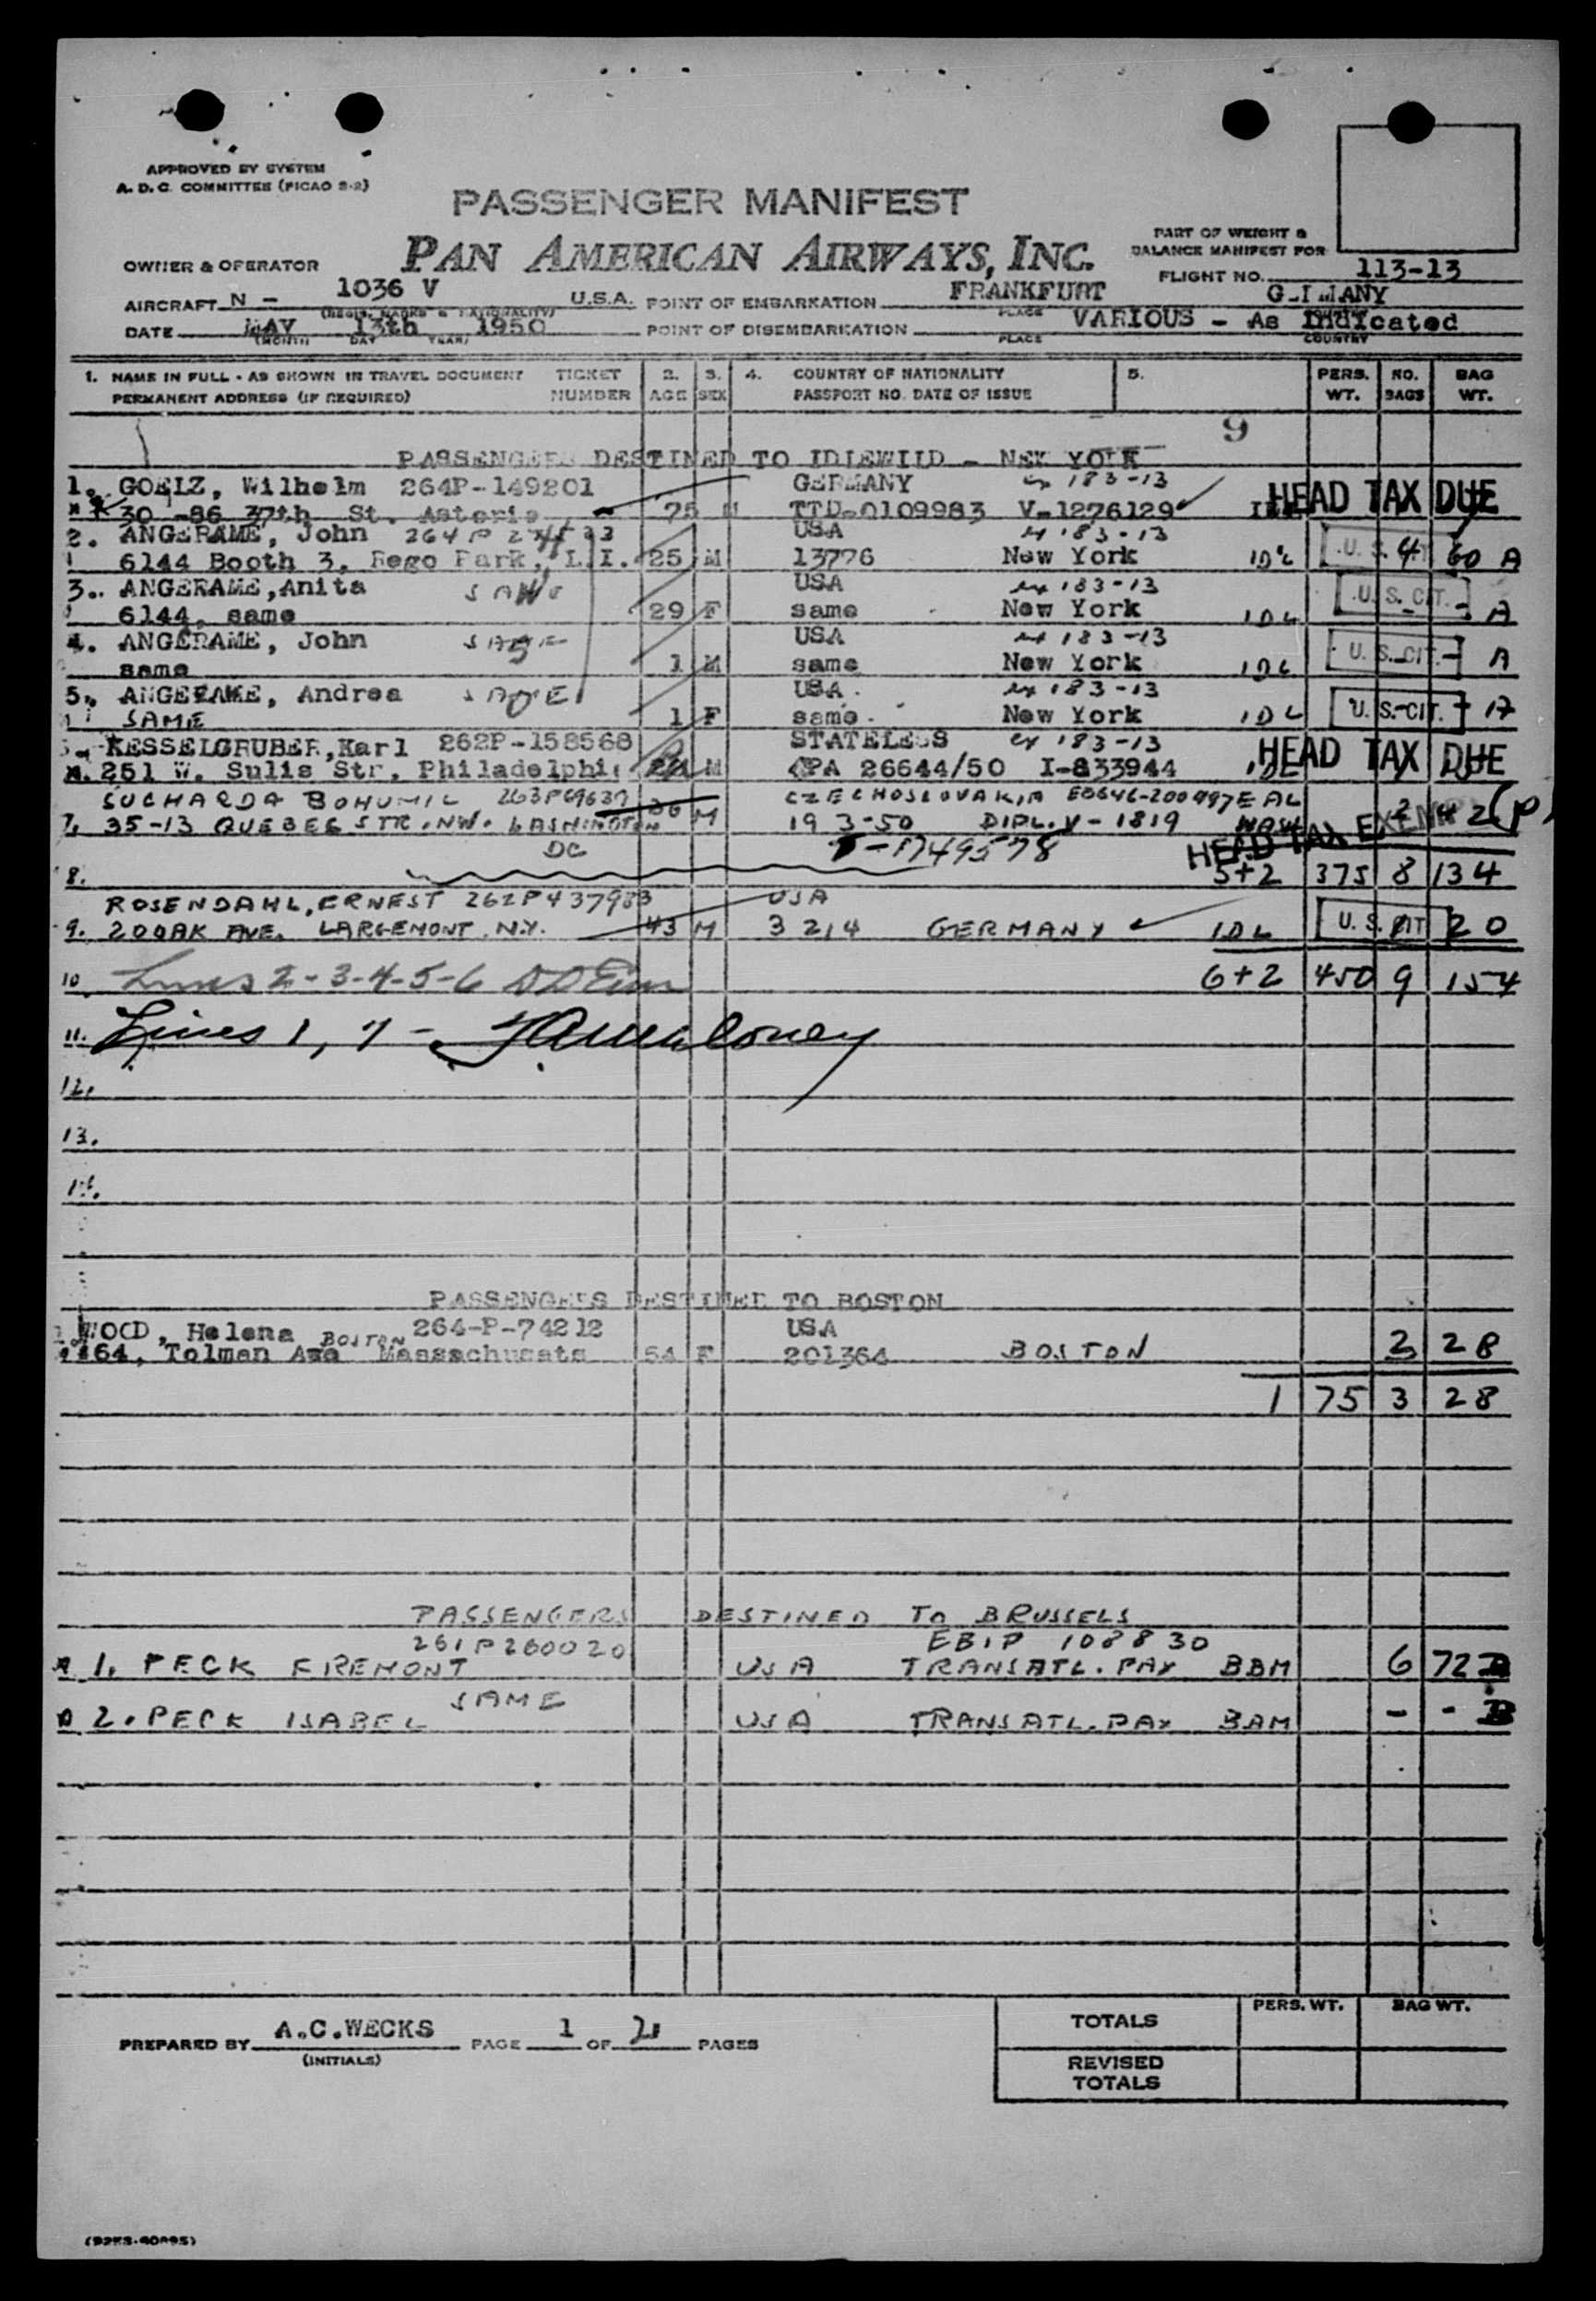 APPROVED BY SYSTEM
A. D. C. COMMITTEE (PICAO 2-2)
PASSENGER MANIFEST
PART OF WEIGHT &
BALANCE MANIFEST FOR
OWNER & OPERATOR PAN AMERICAN AIRWAYS, INC.
FLIGHT NO. 113-13
AIRCRAFT N - 1036 V U.S.A. POINT OF EMBARKATION FRANKFURT
(REGIS. MARKS & NATIONALITY) PLACE
DATE MAY 13th 1950 POINT OF DISEMBARKATION VARIOUS - As Indicated
(MONTH DAY YEAR) PLACE COUNTRY
1. NAME IN FULL - AS SHOWN IN TRAVEL DOCUMENT TICKET 2. 3. 4. COUNTRY OF NATIONALITY 5. PERS. NO. BAG
PERMANENT ADDRESS (IF REQUIRED) NUMBER AGE SEX PASSPORT NO. DATE OF ISSUE WT. BAGS WT.
9
PASSENGERS DESTINED TO IDLEWILD - NEW YORK
1. GOELZ, Wilhelm 264P-149201 GERMANY ex 183-13 HEAD TAX DUE
30 -86 37th St. Astoria 75 M TTD-0109983 V-1276129
2. ANGERAME, John USA ex 183-13
6144 Booth 3, Rego Park, L.I. 25 M 13776 New York IDL U. S. CIT. 4 60 A
3. ANGERAME, Anita SAME USA ex 183-13
6144, same 29 F same New York IDL U. S. CIT. - - A
4. ANGERAME, John SAME USA ex 183-13
same 1 M same New York IDL U. S. CIT. - A
5. ANGERAME, Andrea SAME USA ex 183-13
SAME 1 F same New York IDL U. S. CIT. -
KESSELGRUBER, Karl 262P-158568 STATELESS ex 183-13 HEAD TAX DUE
251 W. Sulis Str, Philadelphi M 26644/50 I-833944 IDL
SUCHARDA BOHUMIL CZECHOSLOVAKIA
7. 35-13 QUEBEC STR. NW. WASHINGTON 36 M 19 3-50 DIPL. V - 1819 WASH HEAD TAX EXEMPT
DC
8. 5+2 375 8 134
ROSENDAHL, ERNEST USA
9. 20 OAK AVE. LARCHMONT N.Y. 43 M 3214 GERMANY IDL U. S. CIT 20
10. Lines 2-3-4-5-6 6+2 450 9 154
11. Lines 1, 7 -
12.
13.
14.
PASSENGERS DESTINED TO BOSTON
WOOD, Helena BOSTON 264-P-74212 USA
64, Tolman Ave Massachusets 54 F 201364 BOSTON 2 28
1 75 3 28
PASSENGERS DESTINED TO BRUSSELS
261P260020 EBIP 108830
1. PECK FREMONT USA TRANSATL. PAX 6 72
SAME
2. PECK ISABEL USA TRANSATL. PAX - - B
PERS. WT. BAG WT.
TOTALS
PREPARED BY A.C.WECKS PAGE 1 OF 2 PAGES
(INITIALS)
REVISED
TOTALS